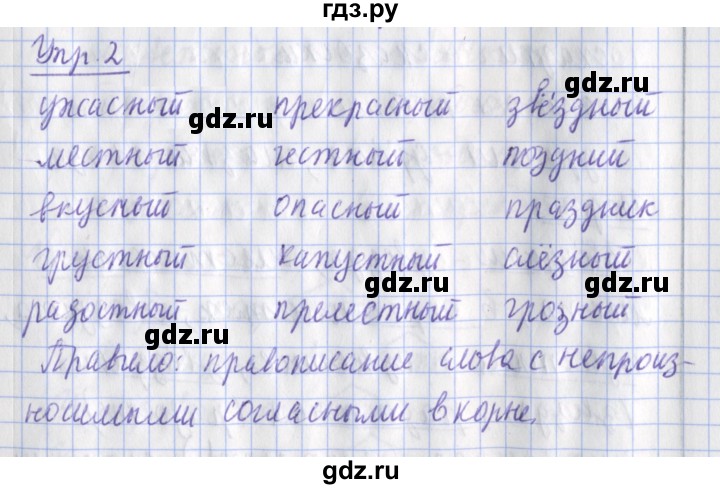 гдз.ру
Упр. 2
ужасный прекрасный звёздный
местный честный поздний
вкусный опасный праздник
грустный капустный слёзный
радостный прелестный грозный
Правило: правописание слова с непроиз-
носимыми согласными в корне.
gdz.ru
gdz.ru
gdz.ru
gdz.ru
gdz.ru
gdz.ru
gdz.ru
gdz.ru